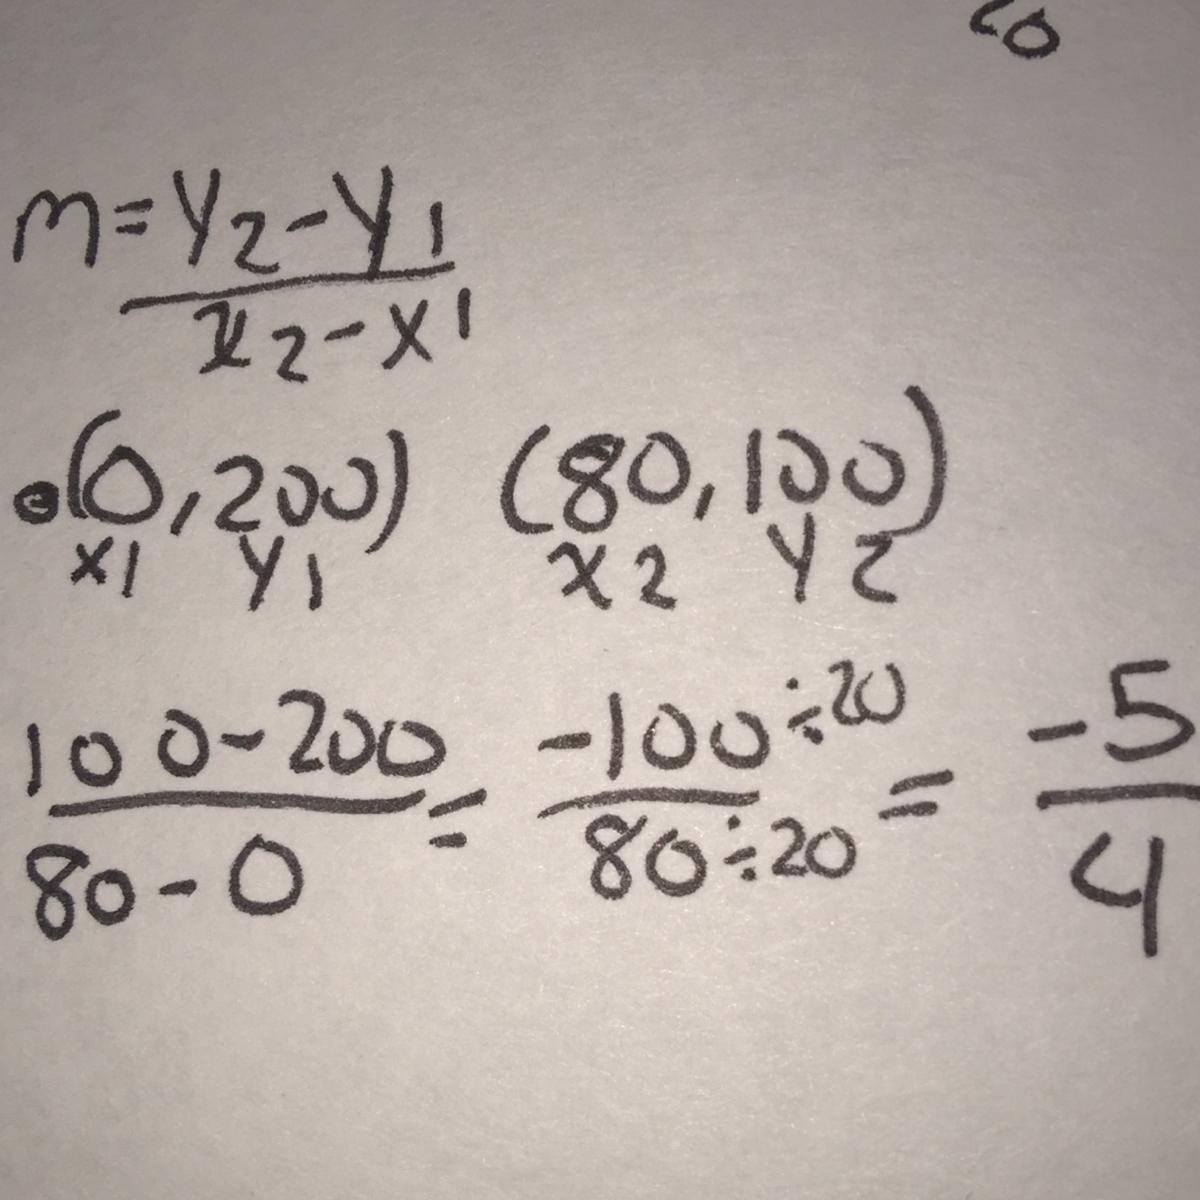 20
m=y2-y1
x2-x1
(0,200) (80,100)
x1 y1 x2 y2
100-200 = -100÷20 = -5
80-0 80÷20 4